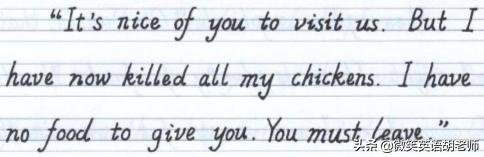 “It's nice of you to visit us. But I
have now killed all my chickens. I have
no food to give you. You must leave.”
头条 @微笑英语胡老师